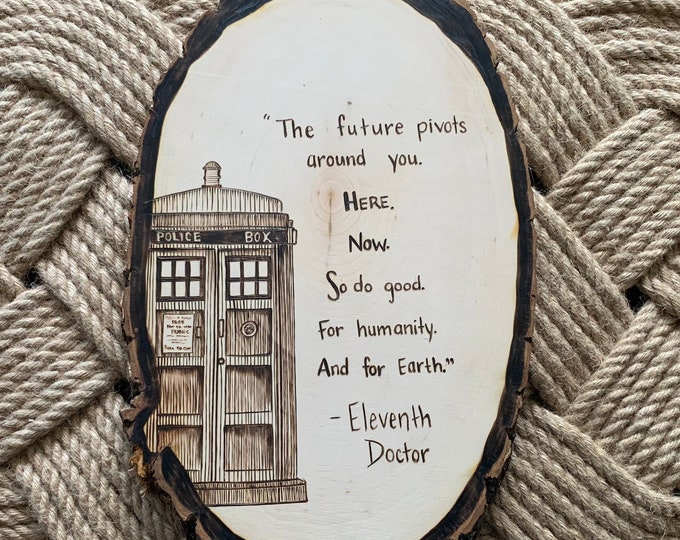 "The future pivots
around you.
HERE.
NOW.
So do good.
For humanity.
And for Earth."
- Eleventh
Doctor
POLICE BOX
FREE
PUBLIC